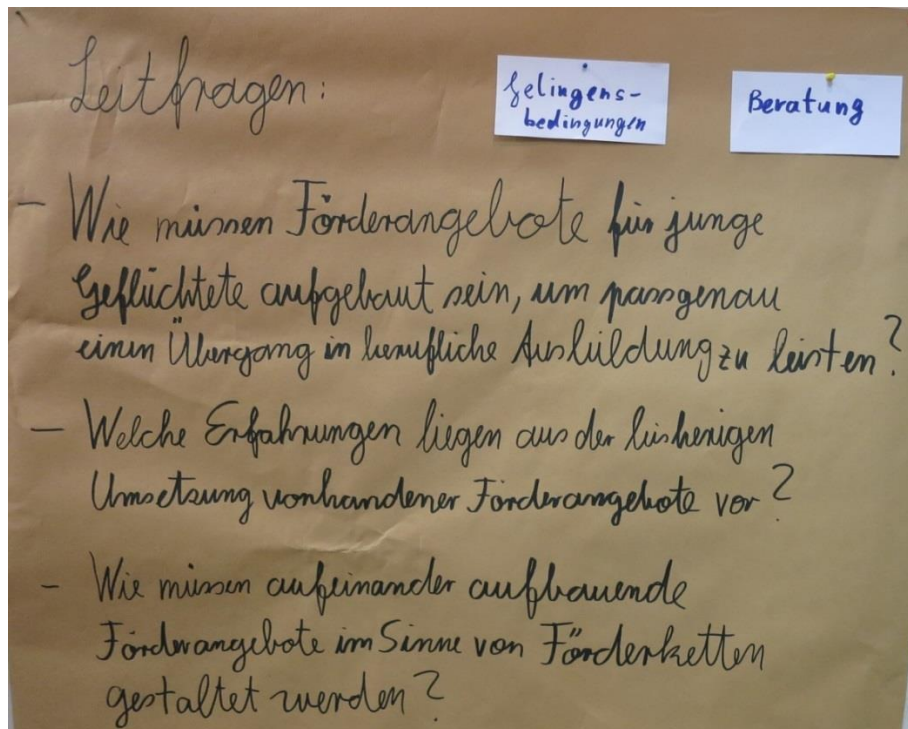 Leitfragen:
Gelingens-
bedingungen
Beratung
- Wie müssen Förderangebote für junge
Geflüchtete aufgebaut sein, um passgenau
einen Übergang in berufliche Ausbildung zu leisten?
- Welche Erfahrungen liegen aus der bisherigen
Umsetzung vorhandener Förderangebote vor?
- Wie müssen aufeinander aufbauende
Förderangebote im Sinne von Förderketten
gestaltet werden?